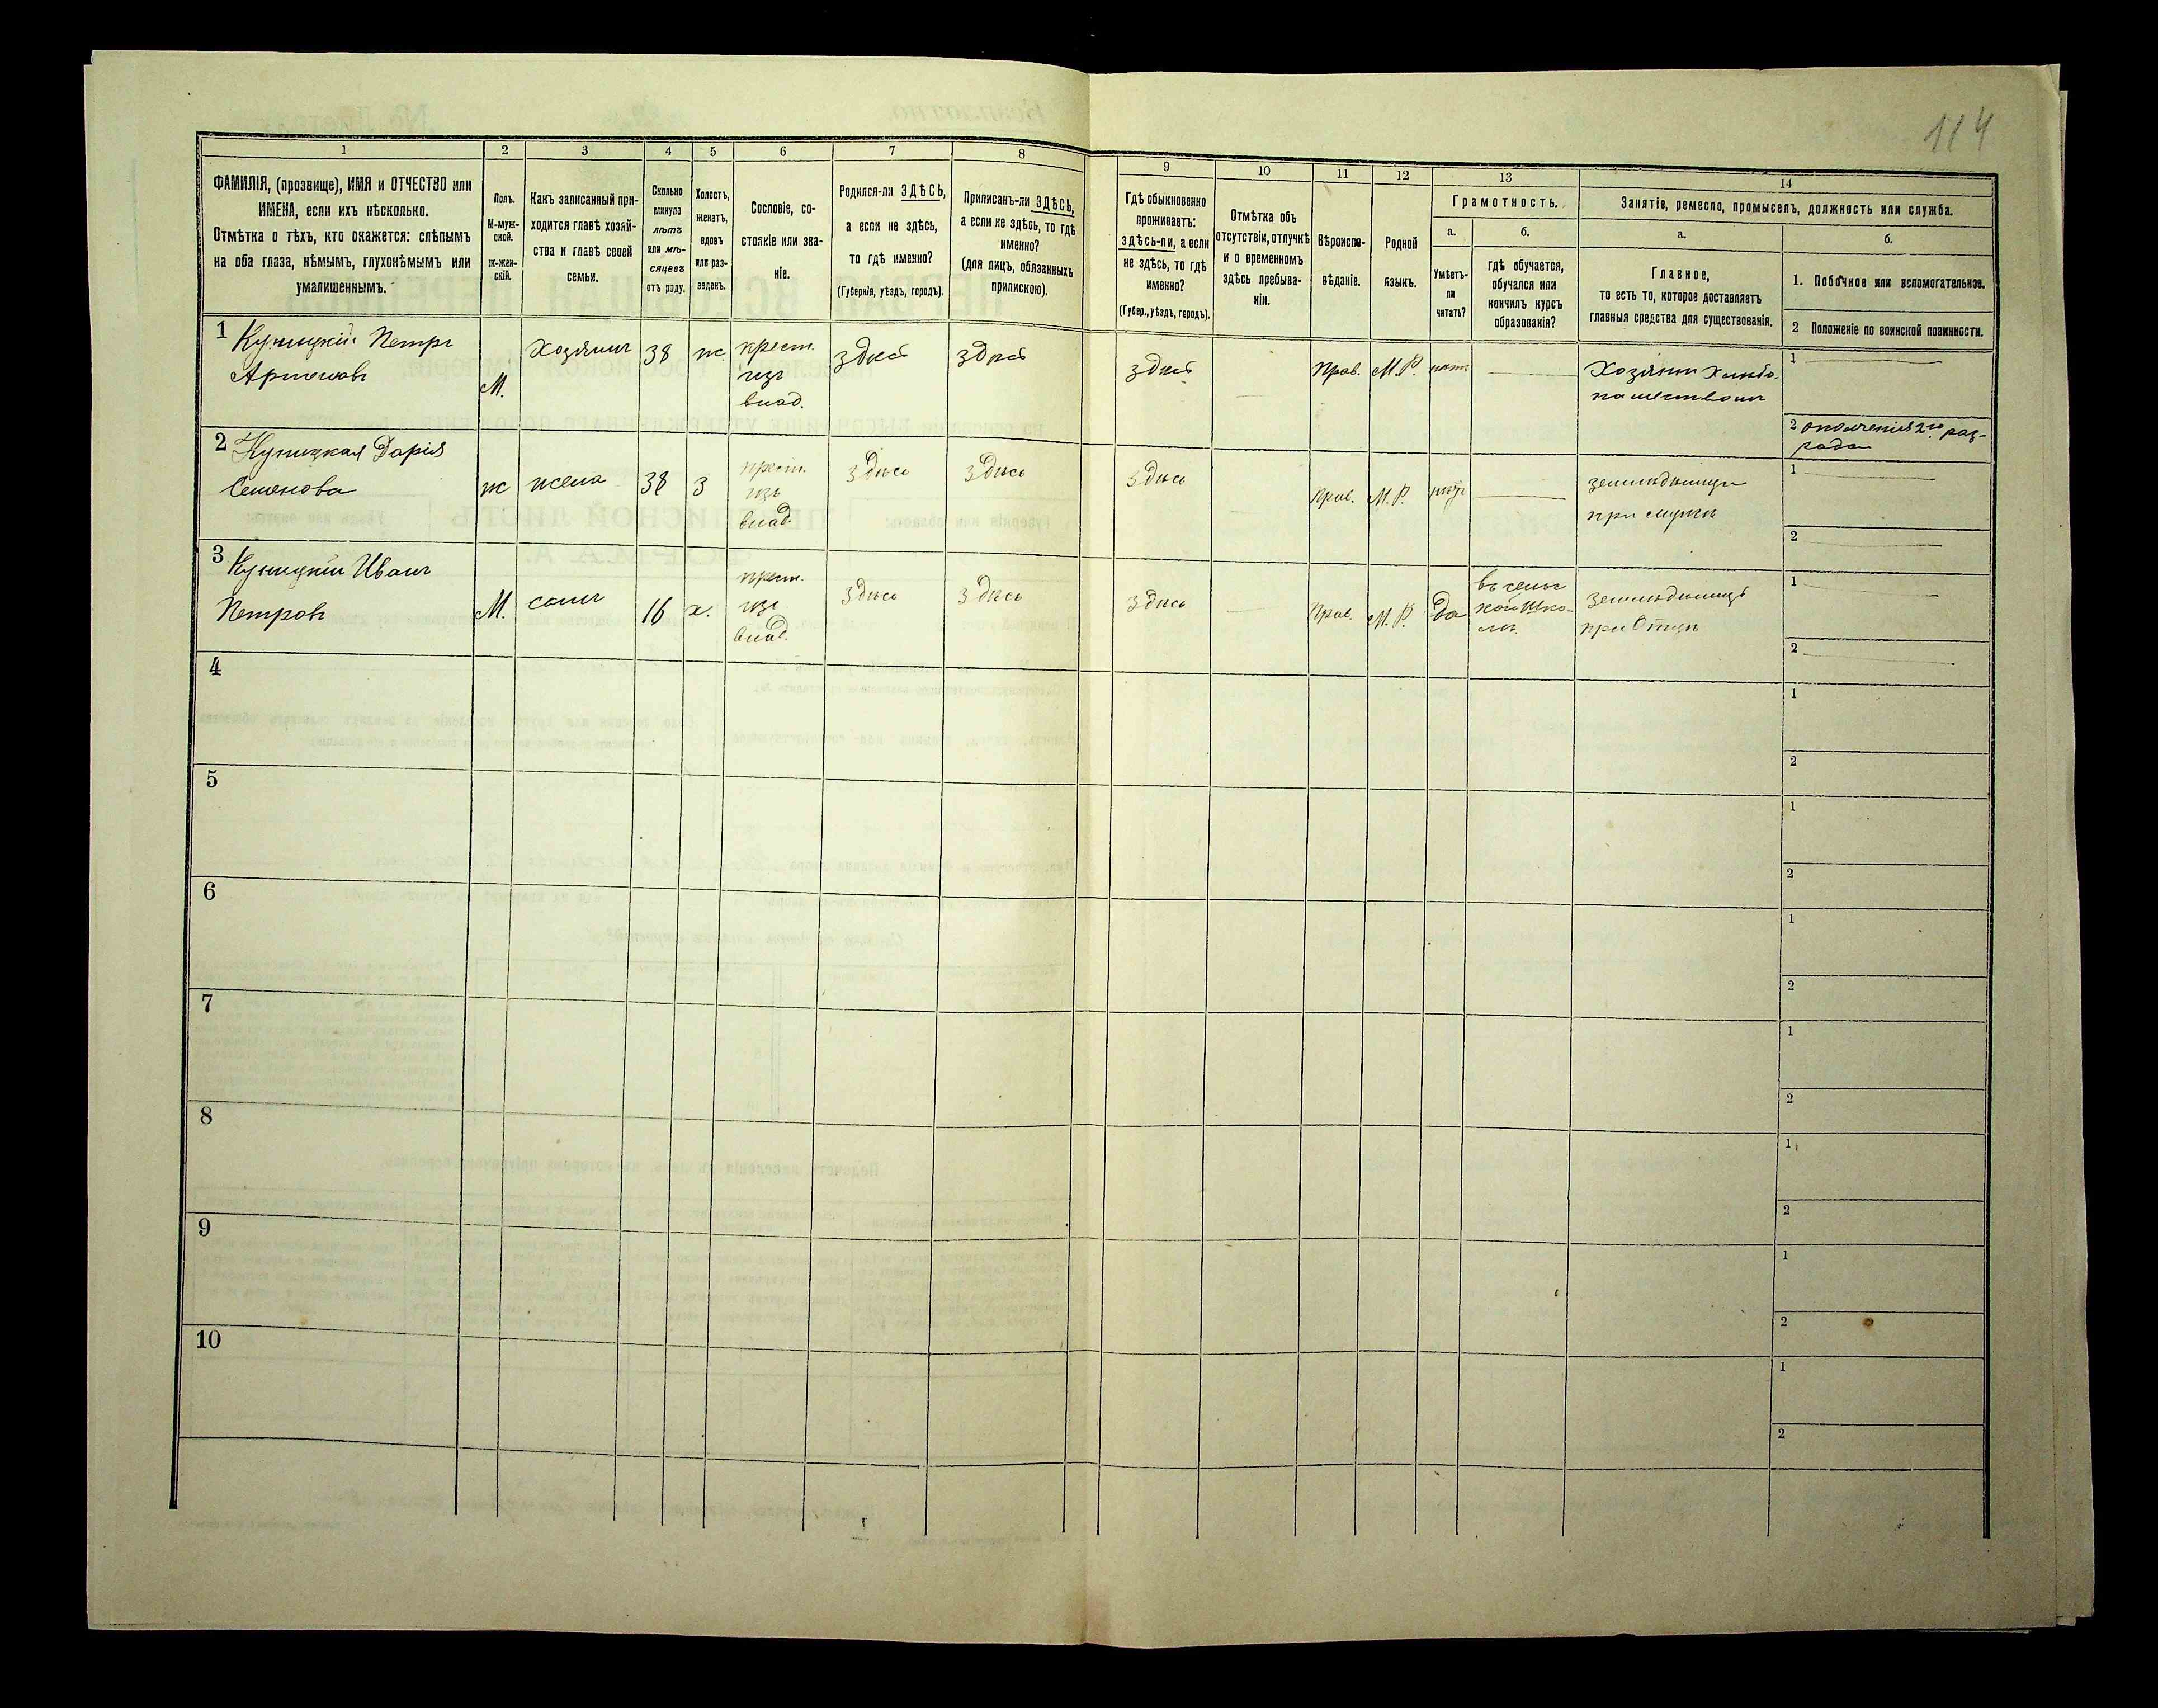 114
1 2 3 4 5 6 7 8 9 10 11 12 13 14
ФАМИЛІЯ, (прозвище), ИМЯ и ОТЧЕСТВО или
ИМЕНА, если ихъ нѣсколько.
Отмѣтка о тѣхъ, кто окажется: слѣпымъ
на оба глаза, нѣмымъ, глухонѣмымъ или
умалишеннымъ.
Полъ.
М-муж-
ской.
ж-жен-
скій.
Какъ записанный при-
ходится главѣ хозяй-
ства и главѣ своей
семьи.
Сколько
минуло
лѣтъ
или мѣ-
сяцевъ
отъ роду.
Холостъ,
женатъ,
вдовъ
или раз-
веденъ.
Сословіе, со-
стояніе или зва-
ніе.
Родился-ли ЗДѢСЬ,
а если не здѣсь,
то гдѣ именно?
(Губернія, уѣздъ, городъ).
Приписанъ-ли ЗДѢСЬ,
а если не здѣсь, то гдѣ
именно?
(для лицъ, обязанныхъ
припискою).
Гдѣ обыкновенно
проживаетъ:
здѣсь-ли, а если
не здѣсь, то гдѣ
именно?
(Губер., уѣздъ, городъ).
Отмѣтка объ
отсутствіи, отлучкѣ
и о временномъ
здѣсь пребыва-
ніи.
Вѣроиспо-
вѣданіе.
Родной
языкъ.
Грамотность.
а.
Умѣетъ-
ли
читать?
б.
гдѣ обучается,
обучался или
кончилъ курсъ
образованія?
Занятіе, ремесло, промыселъ, должность или служба.
а.
Главное,
то есть то, которое доставляетъ
главныя средства для существованія.
б.
1. Побочное или вспомогательное.
2 Положеніе по воинской повинности.
1 Куницкій Петръ
Артемовъ
М.
Хозяинъ
38
ж
крест.
изъ
влад.
здѣсь
здѣсь
здѣсь
Прав.
М.Р.
нѣтъ
Хозяинъ Хлѣбо-
пашествомъ
1
2 ополченія 2го раз-
ряда
2 Куницкая Дарія
Семенова
ж
жена
38
З
крест.
изъ
влад.
здѣсь
здѣсь
здѣсь
Прав.
М.Р.
нѣтъ
земледѣлица
при мужѣ
1
2
3 Куницкій Иванъ
Петровъ
М.
сынъ
16
х.
крест.
изъ
влад.
здѣсь
здѣсь
здѣсь
Прав.
М.Р.
Да
въ сель
кой Шко-
лѣ.
Земледѣлецъ
при Отцѣ
1
2
4
1
2
5
1
2
6
1
2
7
1
2
8
1
2
9
1
2
10
1
2